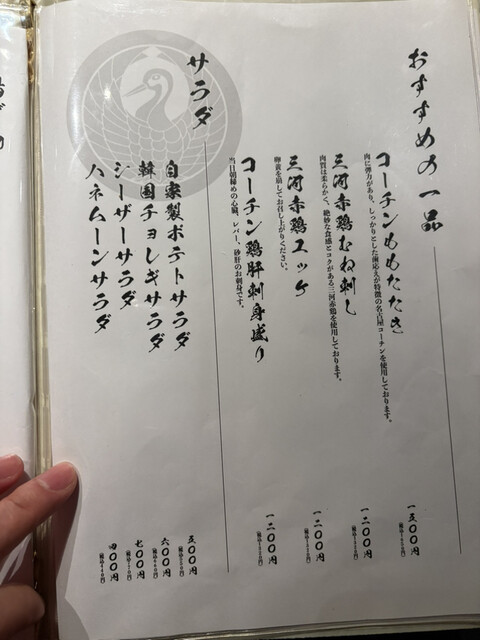 おすすめの一品
コーチンももたたき
肉に弾力があり、しっかりとした歯応えが特徴の名古屋コーチンを使用しております。
一五〇〇円
三河赤鶏むね刺し
肉質は柔らかく、絶妙な食感とコクがある三河赤鶏を使用しております。
一二〇〇円
三河赤鶏ユッケ
卵黄を崩してお召し上がりください。
一二〇〇円
コーチン鶏肝刺身盛り
当日朝締めの心臓、レバー、砂肝のお刺身です。
一二〇〇円
サラダ
自家製ポテトサラダ
五〇〇円
韓国チョレギサラダ
六〇〇円
シーザーサラダ
七〇〇円
ハネムーンサラダ
四〇〇円